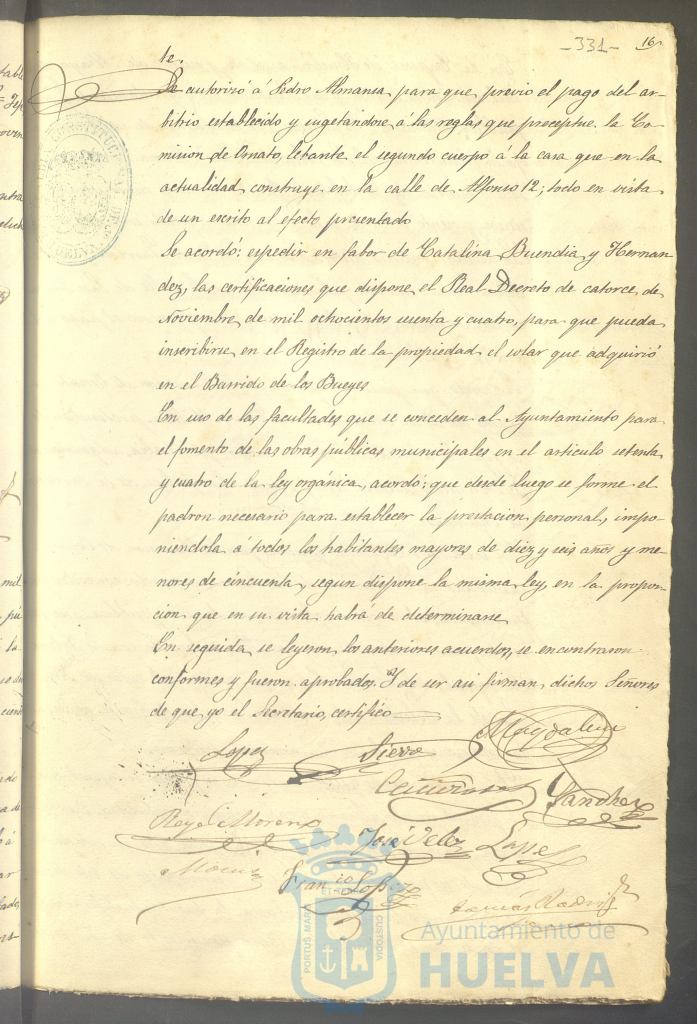 -331-
16
te.
Se autorizó á Pedro Almansa, para que, previo el pago del ar-
bitrio establecido y sugetándose á las reglas que preceptue la Co-
mision de Ornato, lebante el segundo cuerpo á la casa que en la
actualidad construye en la calle de Alfonso 12; todo en vista
de un escrito al efecto presentado
Se acordó: espedir en fabor de Catalina Buendia y Hernan
dez, las certificaciones que dispone el Real Decreto de catorce de
Noviembre de mil ochocientos sesenta y cuatro, para que pueda
inscribirse en el Registro de la propiedad el solar que adquirió
en el Barrido de los Bueyes
En uso de las facultades que se conceden al Ayuntamiento para
el fomento de las obras públicas municipales en el articulo setenta
y cuatro de la ley orgánica, acordó: que desde luego se forme el
padron necesario para establecer la prestacion personal, impo-
niendola á todos los habitantes mayores de diez y seis años y me-
nores de cincuenta, segun dispone la misma ley, en la propor-
cion que en su vista habrá de determinarse
En seguida se leyeron los anteriores acuerdos, se encontraron
conformes y fueron aprobados. Y de ser asi firman dichos Señores
de que, yo el Secretario, certifico
Lopez Sierra Magdalena
Sanchez
Reyes Moreno
José Velez Lopez
Franco Lopez
Tomás Rodrig
PORTUS MARIS ET TERRAE CUSTODIA
Ayuntamiento de
HUELVA